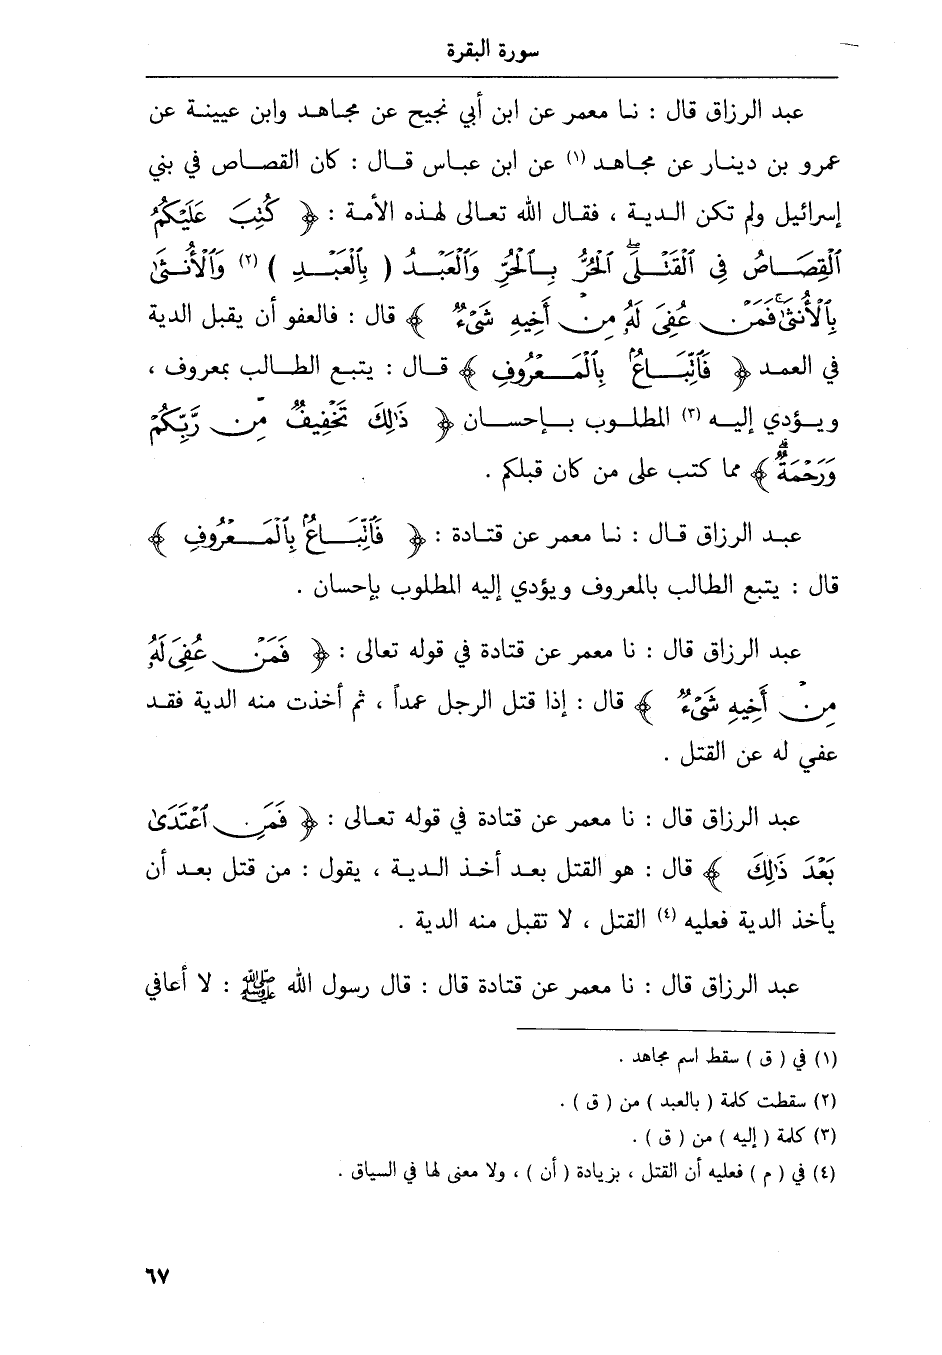 سورة البقرة
عبد الرزاق قال : نا معمر عن ابن أبي نجيح عن مجاهد وابن عيينة عن
عمرو بن دينار عن مجاهد (١) عن ابن عباس قال : كان القصاص في بني
إسرائيل ولم تكن الدية ، فقال الله تعالى لهذه الأمة : ﴿ كُتِبَ عَلَيْكُمُ
ٱلْقِصَاصُ فِي ٱلْقَتْلَىۖ ٱلْحُرُّ بِٱلْحُرِّ وَٱلْعَبْدُ ( بِٱلْعَبْدِ ) (٢) وَٱلْأُنثَىٰ
بِٱلْأُنثَىٰۚ فَمَنْ عُفِيَ لَهُۥ مِنْ أَخِيهِ شَيْءٌ ﴾ قال : فالعفو أن يقبل الدية
في العمد ﴿ فَٱتِّبَاعٌۢ بِٱلْمَعْرُوفِ ﴾ قال : يتبع الطالب بمعروف ،
ويؤدي إليه (٣) المطلوب بإحسان ﴿ ذَٰلِكَ تَخْفِيفٌ مِّن رَّبِّكُمْ
وَرَحْمَةٌۗ ﴾ مما كتب على من كان قبلكم .
عبد الرزاق قال : نا معمر عن قتادة : ﴿ فَٱتِّبَاعٌۢ بِٱلْمَعْرُوفِ ﴾
قال : يتبع الطالب بالمعروف ويؤدي إليه المطلوب بإحسان .
عبد الرزاق قال : نا معمر عن قتادة في قوله تعالى : ﴿ فَمَنْ عُفِيَ لَهُۥ
مِنْ أَخِيهِ شَيْءٌ ﴾ قال : إذا قتل الرجل عمداً ، ثم أخذت منه الدية فقد
عفي له عن القتل .
عبد الرزاق قال : نا معمر عن قتادة في قوله تعالى : ﴿ فَمَنِ ٱعْتَدَىٰ
بَعْدَ ذَٰلِكَ ﴾ قال : هو القتل بعد أخذ الدية ، يقول : من قتل بعد أن
يأخذ الدية فعليه (٤) القتل ، لا تقبل منه الدية .
عبد الرزاق قال : نا معمر عن قتادة قال : قال رسول الله ﷺ : لا أعافي
(١) في ( ق ) سقط اسم مجاهد .
(٢) سقطت كلمة ( بالعبد ) من ( ق ) .
(٣) كلمة ( إليه ) من ( ق ) .
(٤) في ( م ) فعليه أن القتل ، بزيادة ( أن ) ، ولا معنى لها في السياق .
٦٧